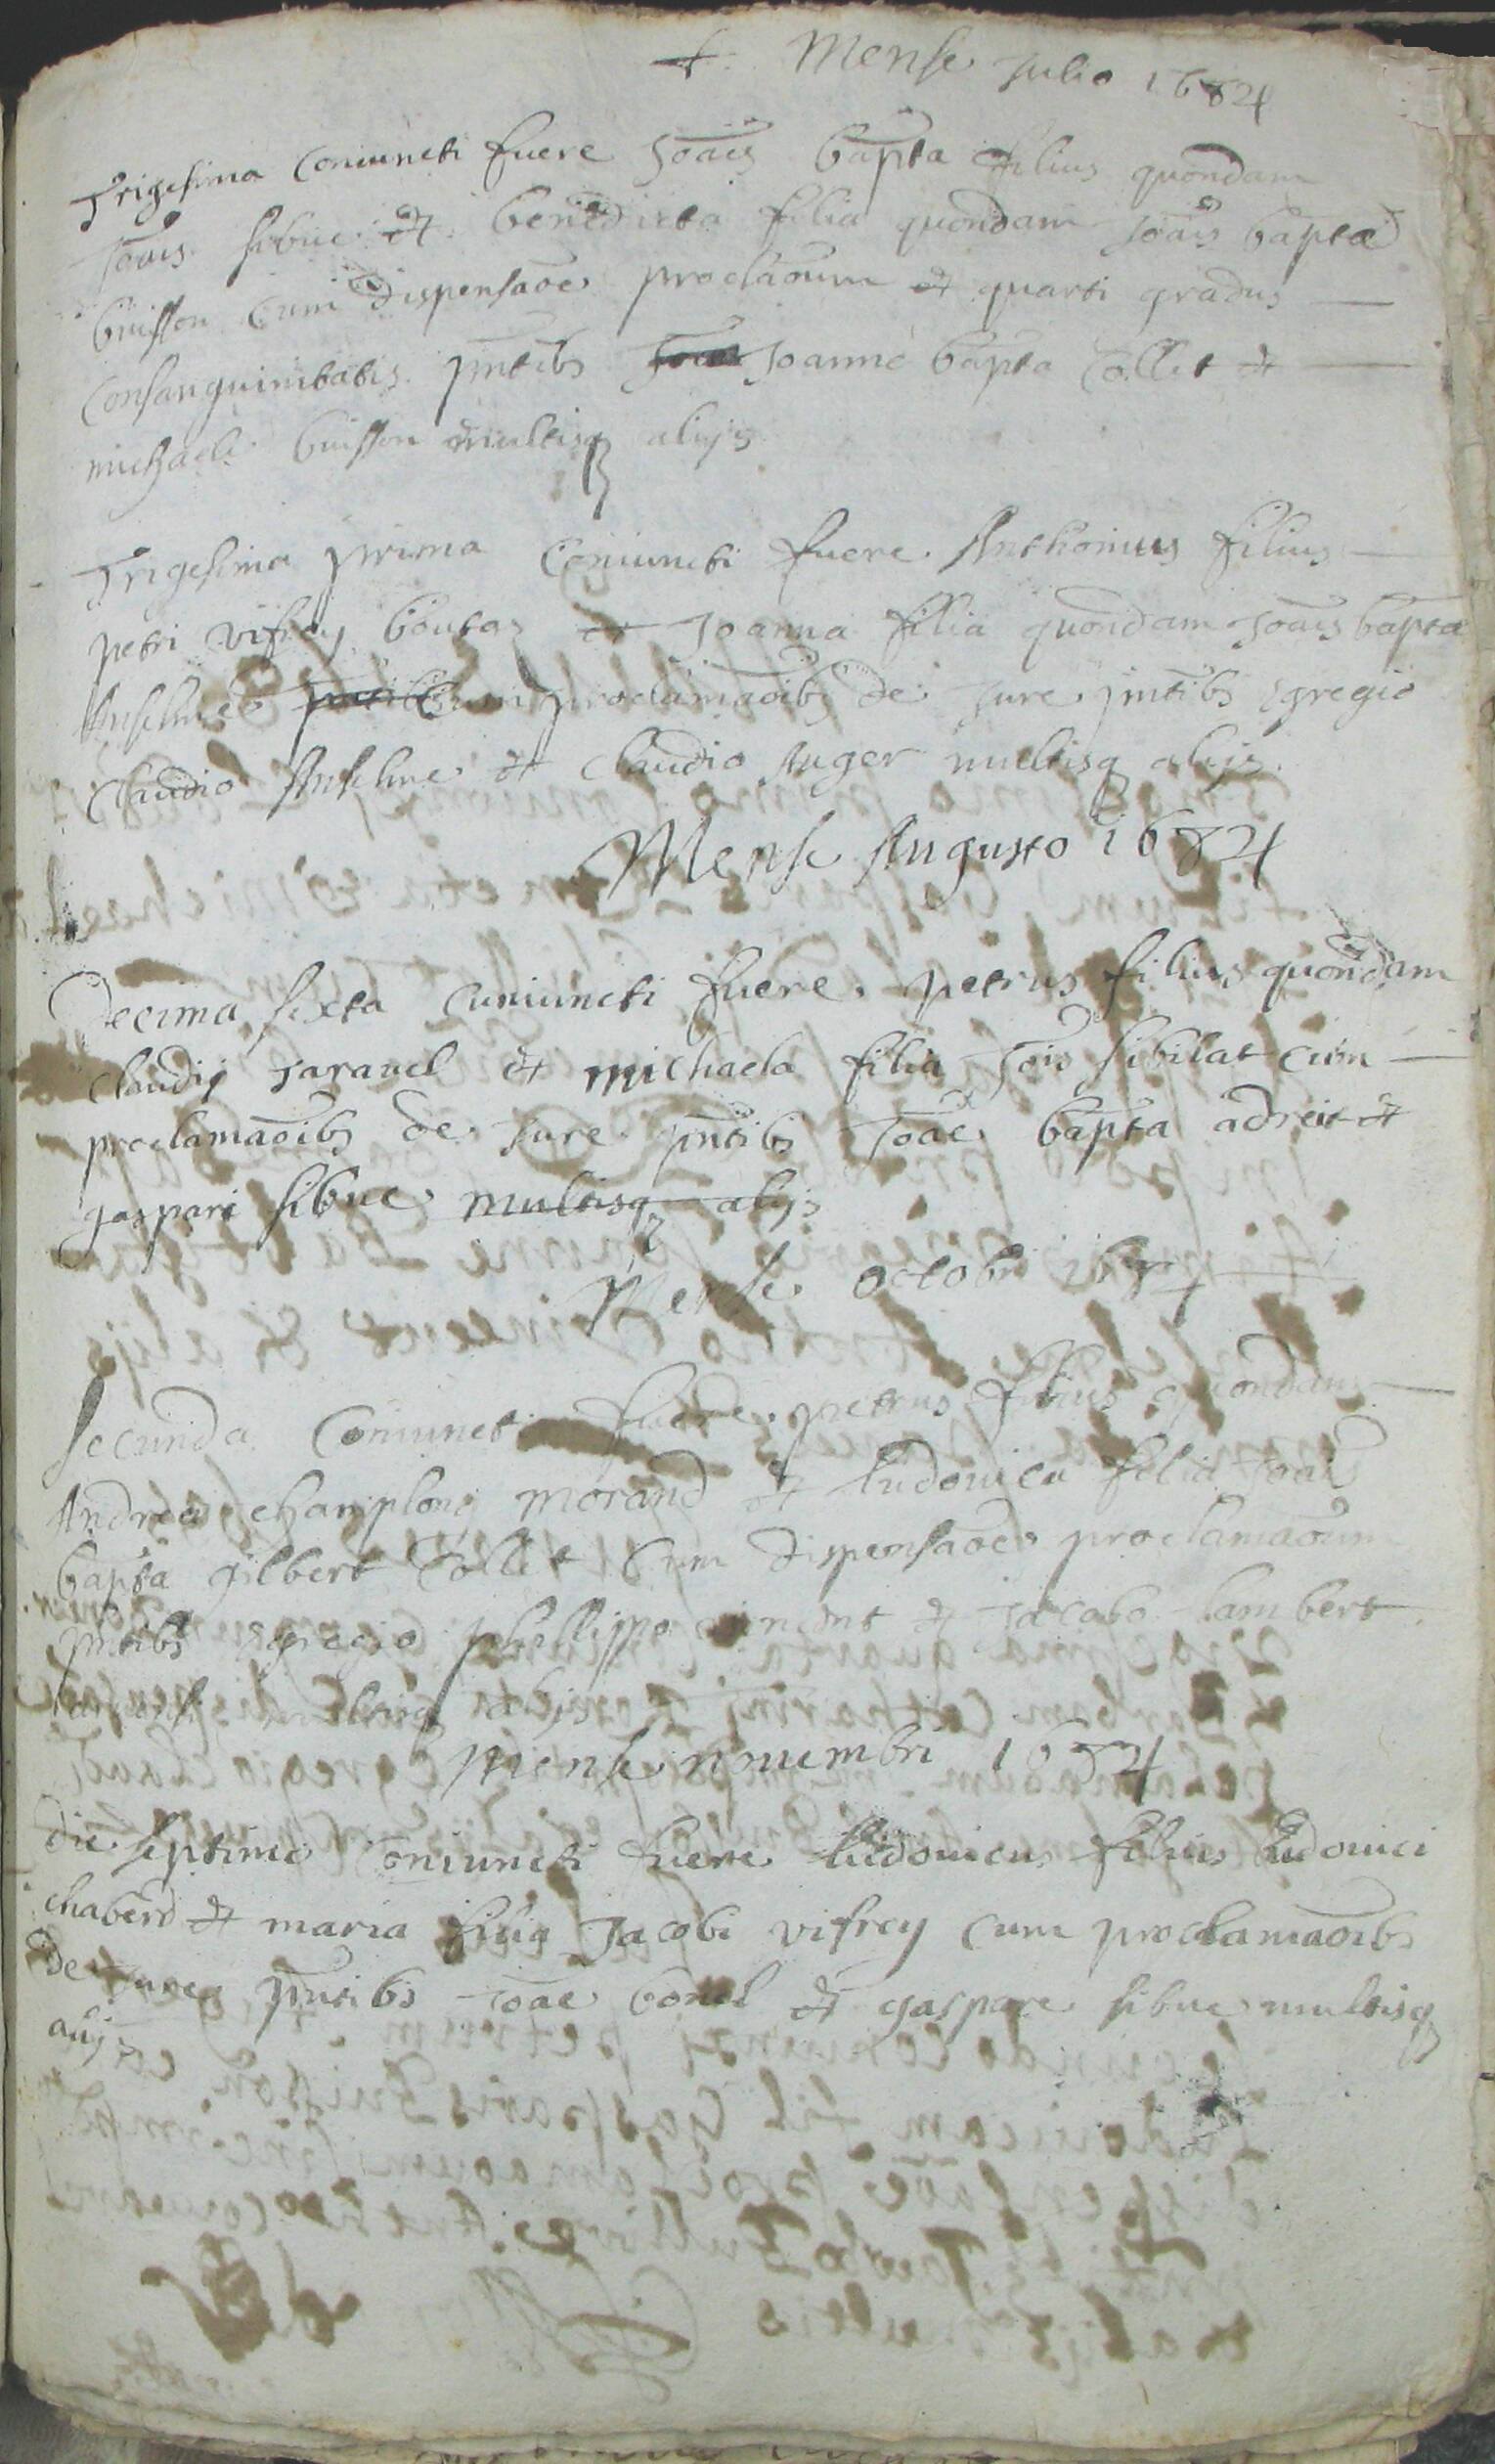 + Mense Julio 1684
Trigesima Coniuncti fuere Joãis bapta filius quondam
Joãis sibue et benedicta filia quondam Joãis baptæ
buisson Cum dispensaõe proclaõum et quarti gradus
Consanguinitatis pñtibs Joanne bapta Collet et
michaele buisson multisq alijs
Trigesima prima Coniuncti fuere Anthonius filius
petri vifrey boutas et Joanna filia quondam Joãis baptæ
Anselme Cum proclamaõibs de Jure pñtibs Egregio
Claudio Anselme et Claudio Auger multisq alijs.
Mense Augusto 1684
Decima sixta Cuniuncti fuere petrus filius quondam
Claudij Taravel et michaela filia Jõis sibilat cum
proclamaõibs de Jure pñtibs Joãe bapta adreit et
gaspare sibue multisq alijs
Mense octobri 1684
Secunda Coniuncti fuere petrus filius quondam
Andreæ champlong morand et ludovica filia Joãis
baptæ gilbert Collet Cum dispensaõe proclamaõum
pñtibs Egregio phillippo vincent et Jacobo lambert
multisq alijs
Mense novembri 1684
die septima Coniuncti fuere ludovicus filius ludovici
chaberd et maria filia Jacobi vifrey cum proclamaõibs
de Jure pñtibs Joãe borel et gaspare sibue multisq
alijs